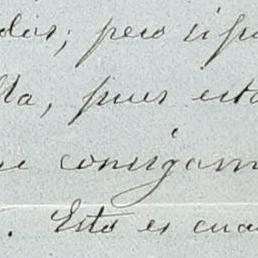 dos; pero si
lla, pues esta
consigam
. Esto es cua